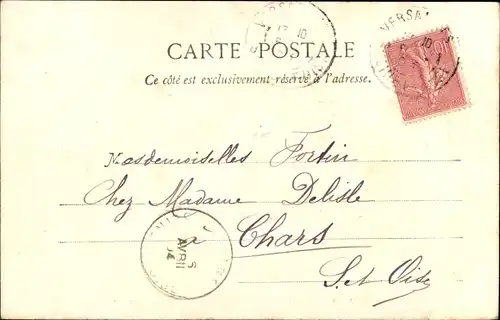 CARTE POSTALE
Ce côté est exclusivement réservé à l'adresse.
VERSA
10
Mesdemoiselles Fortin
Chez Madame Delisle
à Chars
S. et Oise
6
AVRIL
04